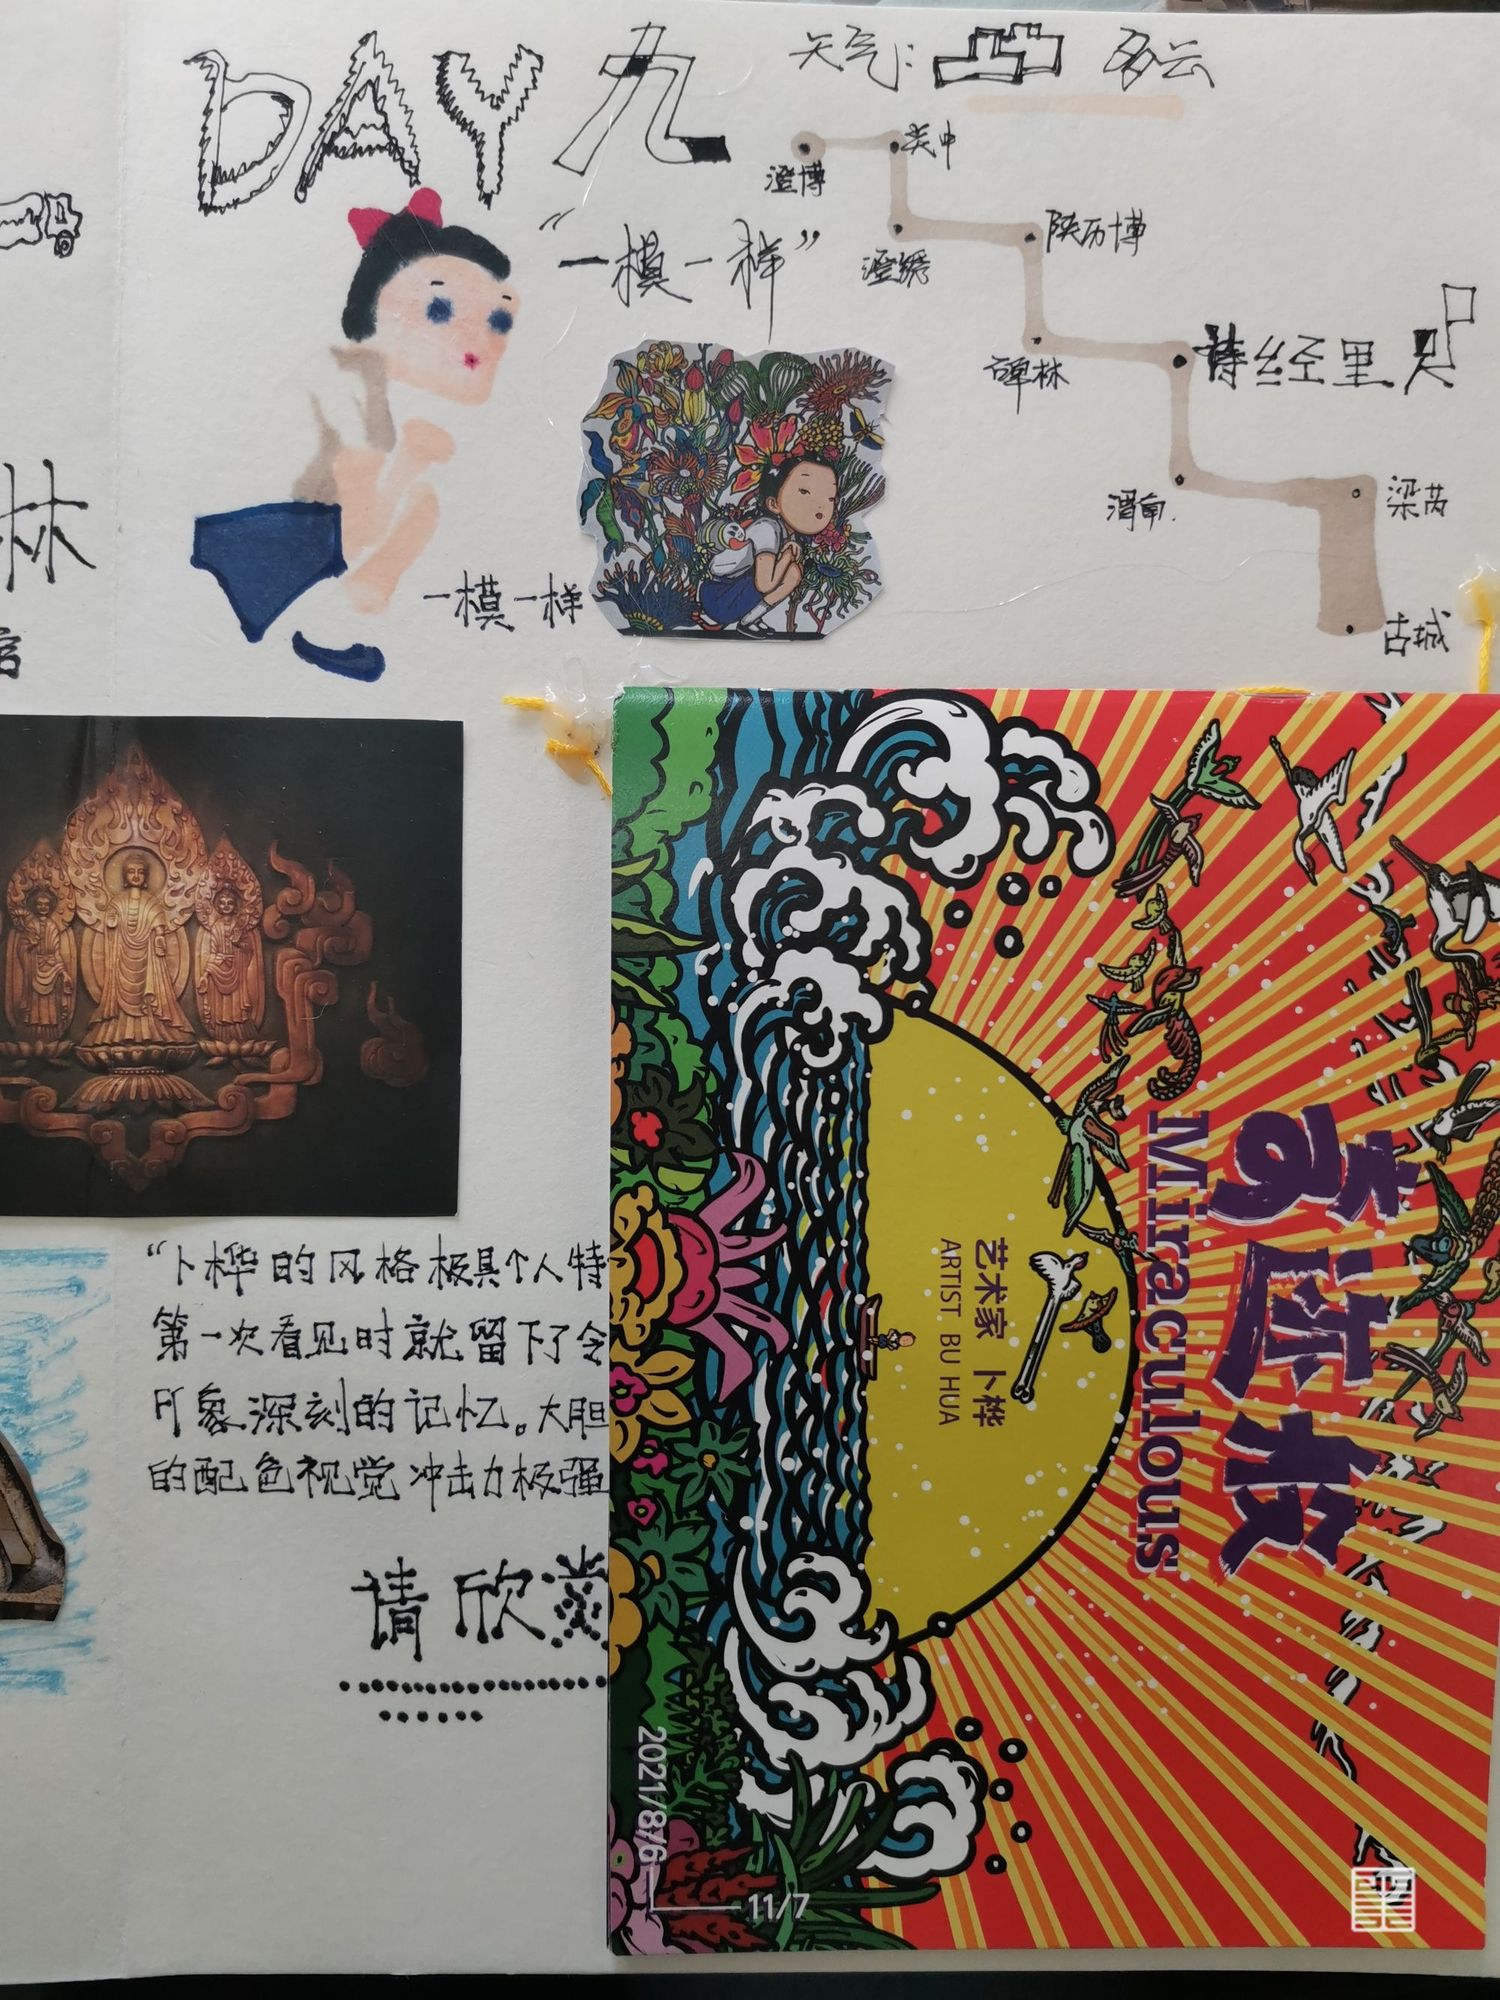 DAY 九
天气: 多云
澄博
关中
澄绣
陕历博
碑林
诗经里
渭南
梁芮
古城
“一模一样”
一模一样
林
馆
“卜桦的风格极具个人特
第一次看见时就留下了令
印象深刻的记忆。大胆
的配色视觉冲击力极强
请欣赏
奇迹般
Miraculous
艺术家 卜桦
ARTIST. BU HUA
2021/8/6—11/7